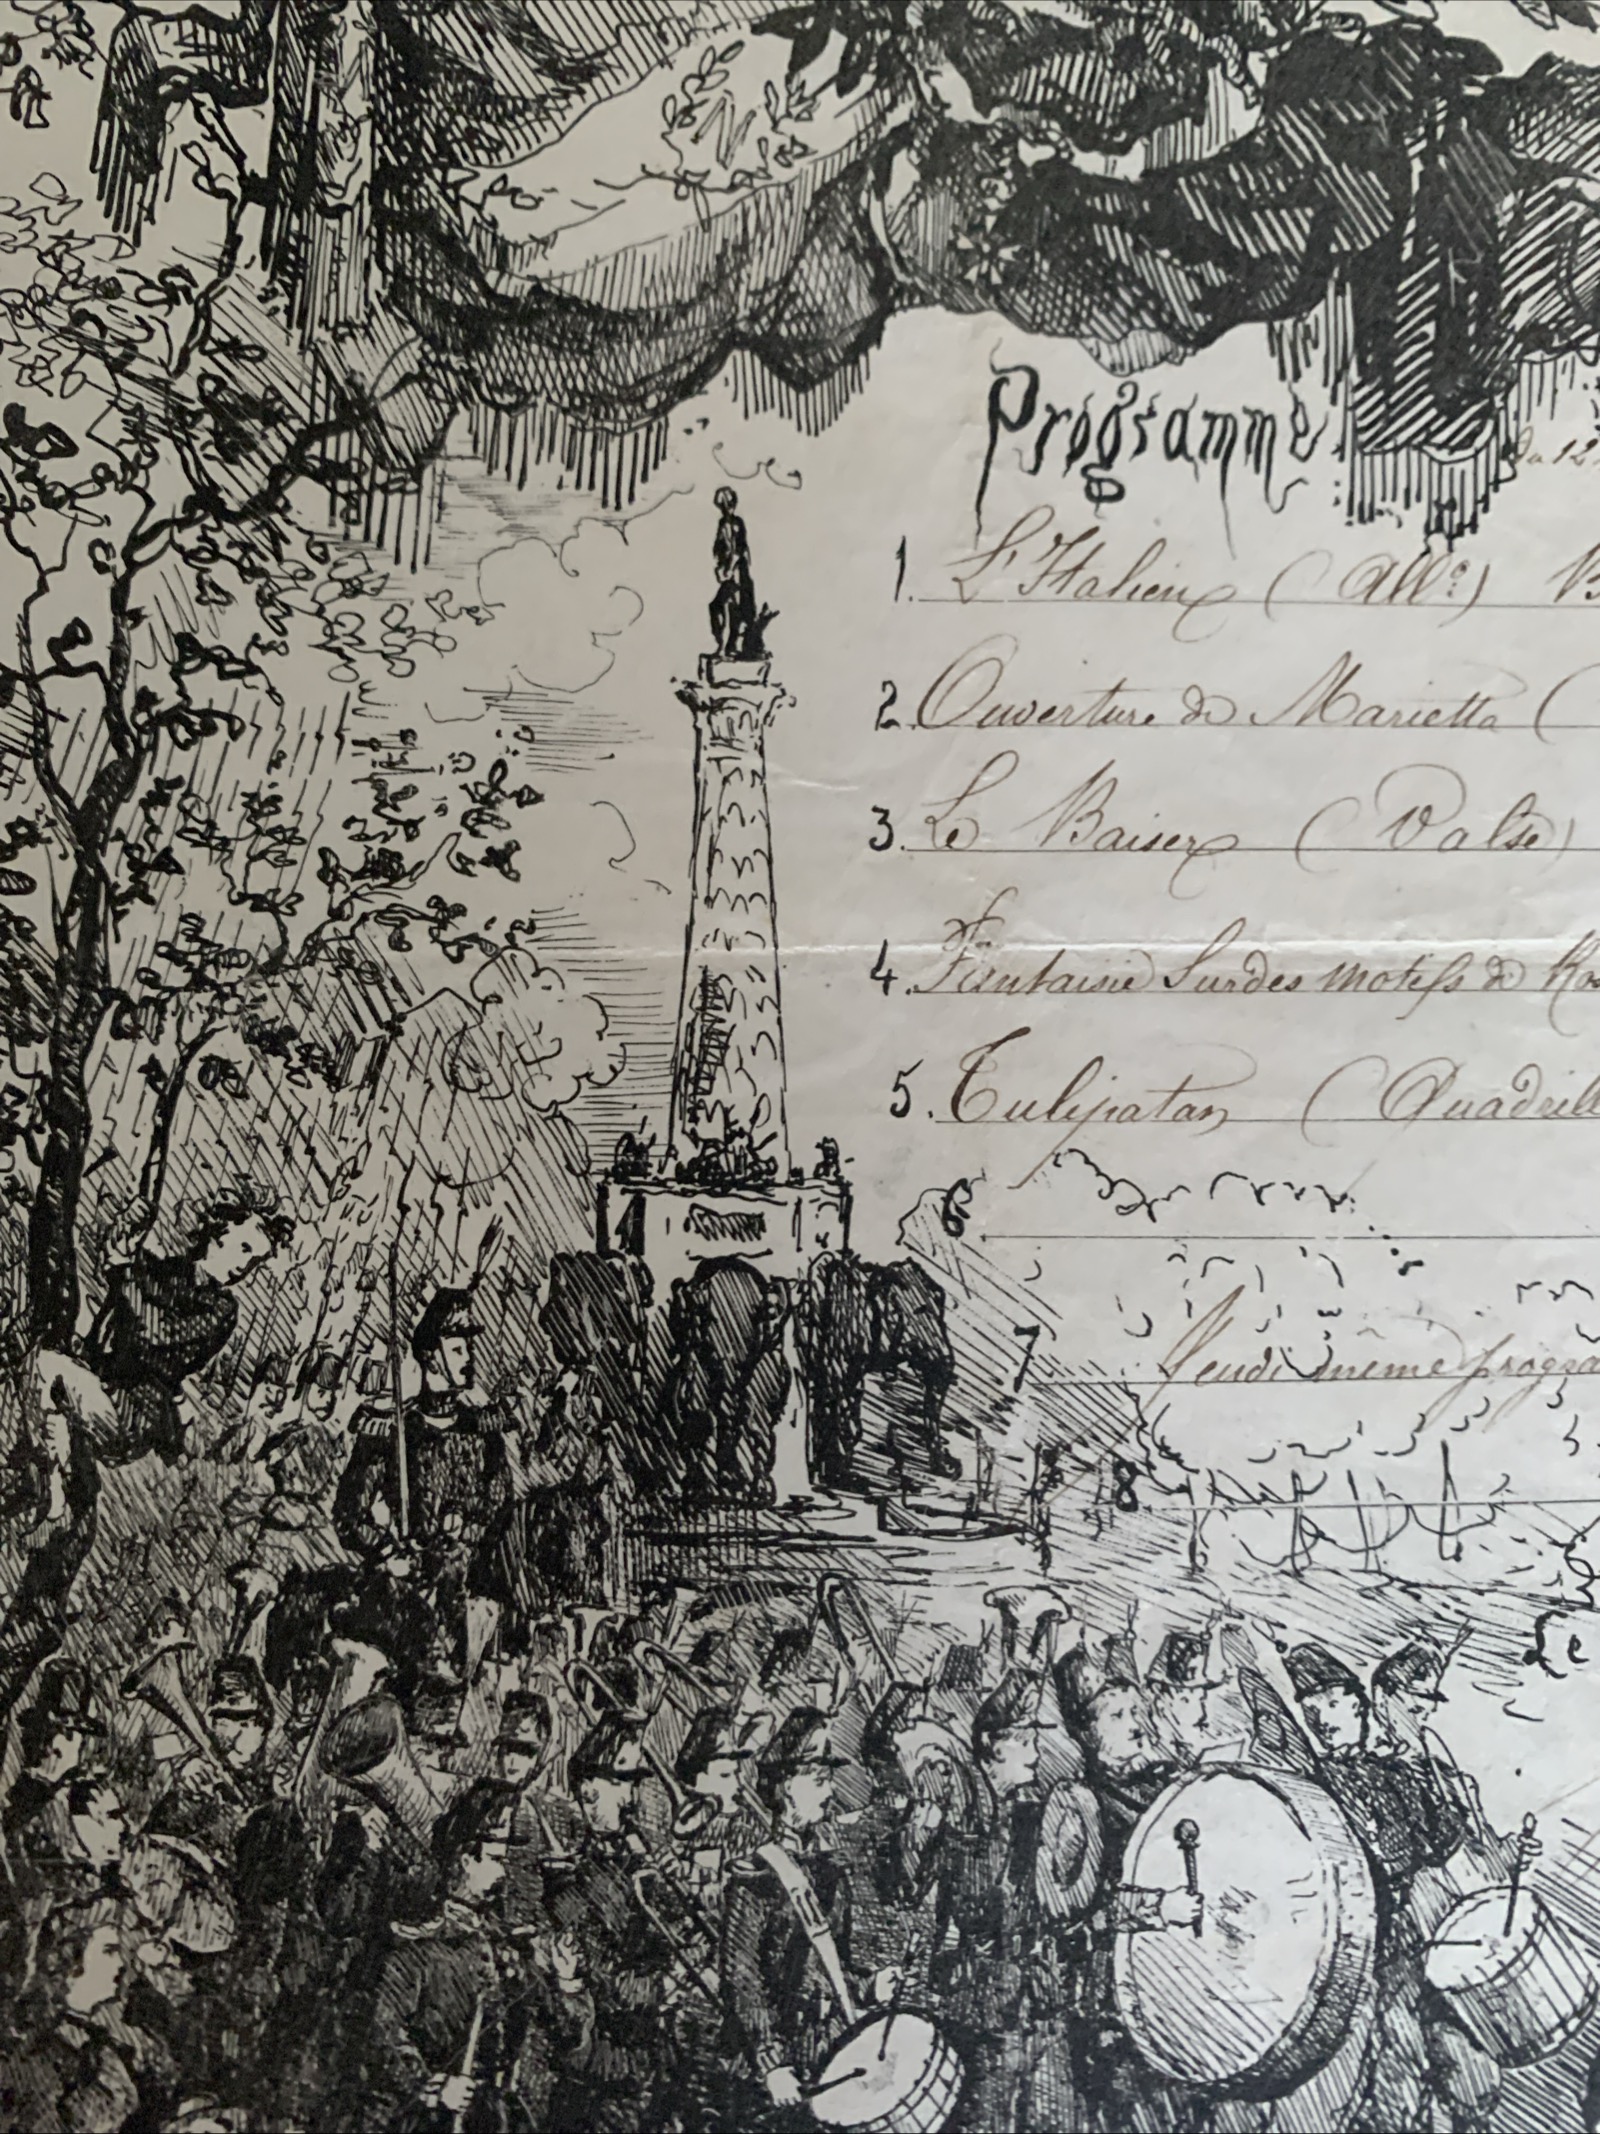 Programme
du 12
1. L'Italien (All°)
2. Ouverture de Marietta (
3. Le Baiser (Valse)
4. Fantaisie Sur des motifs de
5. Tulipatan (Quadrill
6.
7 Jeudi même progra
8
Le